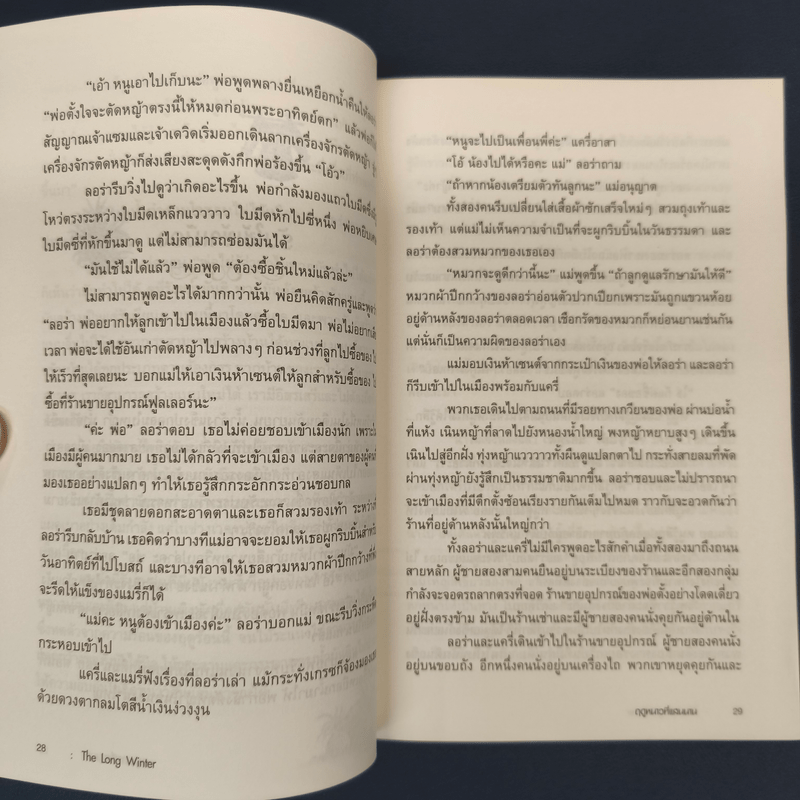 “เอ้า หนูเอาไปเก็บนะ” พ่อพูดพลางยื่นเหยือกน้ำคืนให้
“พ่อตั้งใจจะตัดหญ้าตรงนี้ให้หมดก่อนพระอาทิตย์ตก” แล้วพ่อก็
สัญญาณเจ้าแซมและเจ้าเดวิดเริ่มออกเดินลากเครื่องจักรตัดหญ้า
เครื่องจักรตัดหญ้าก็ส่งเสียงสะดุดดังกึกพ่อร้องขึ้น “โอ้ว”
ลอร่ารีบวิ่งไปดูว่าเกิดอะไรขึ้น พ่อกำลังมองแถวใบมีดซึ่ง
โหว่ตรงระหว่างใบมีดเหล็กแวววาว ใบมีดหักไปซี่หนึ่ง พ่อหยิบ
ใบมีดซี่ที่หักขึ้นมาดู แต่ไม่สามารถซ่อมมันได้
“มันใช้ไม่ได้แล้ว” พ่อพูด “ต้องซื้อชิ้นใหม่แล้วล่ะ”
ไม่สามารถพูดอะไรได้มากกว่านั้น พ่อยืนคิดสักครู่และพูดว่า
“ลอร่า พ่ออยากให้ลูกเข้าไปในเมืองแล้วซื้อใบมีดมา พ่อไม่อยาก
เวลา พ่อจะได้ใช้อันเก่าตัดหญ้าไปพลางๆ ก่อนช่วงที่ลูกไปซื้อของ
ให้เร็วที่สุดเลยนะ บอกแม่ให้เอาเงินห้าเซนต์ให้ลูกสำหรับซื้อของ
ซื้อที่ร้านขายอุปกรณ์ฟูลเลอร์นะ”
“ค่ะ พ่อ” ลอร่าตอบ เธอไม่ค่อยชอบเข้าเมืองนัก เพราะใน
เมืองมีผู้คนมากมาย เธอไม่ได้กลัวที่จะเข้าเมือง แต่สายตาของผู้คนที่
มองเธออย่างแปลกๆ ทำให้เธอรู้สึกกระอักกระอ่วนชอบกล
เธอมีชุดลายดอกสะอาดตาและเธอก็สวมรองเท้า ระหว่างที่
ลอร่ารีบกลับบ้าน เธอคิดว่าบางทีแม่อาจจะยอมให้เธอผูกริบบิ้นสำหรับ
วันอาทิตย์ที่ไปโบสถ์ และบางทีอาจให้เธอสวมหมวกผ้าปีกกว้างที่
จะรีดให้แข็งของแมรี่ก็ได้
“แม่คะ หนูต้องเข้าเมืองค่ะ” ลอร่าบอกแม่ ขณะรีบวิ่งกระหืด
กระหอบเข้าไป
แครี่และแมรี่ฟังเรื่องที่ลอร่าเล่า แม้กระทั่งเกรซก็จ้องมอง
ด้วยดวงตากลมโตสีน้ำเงินง่วงงุน
28 : The Long Winter
“หนูจะไปเป็นเพื่อนพี่ค่ะ” แครี่อาสา
“โอ้ น้องไปได้หรือคะ แม่” ลอร่าถาม
“ถ้าหากน้องเตรียมตัวทันลูกนะ” แม่อนุญาต
ทั้งสองคนรีบเปลี่ยนใส่เสื้อผ้าซักเสร็จใหม่ๆ สวมถุงเท้าและ
รองเท้า แต่แม่ไม่เห็นความจำเป็นที่จะผูกริบบิ้นในวันธรรมดา และ
ลอร่าต้องสวมหมวกของเธอเอง
“หมวกจะดูดีกว่านี้นะ” แม่พูดขึ้น “ถ้าลูกดูแลรักษามันให้ดี”
หมวกผ้าปีกกว้างของลอร่าอ่อนตัวปวกเปียกเพราะมันถูกแขวนห้อย
อยู่ด้านหลังของลอร่าตลอดเวลา เชือกรัดของหมวกก็หย่อนยานเช่นกัน
แต่นั่นก็เป็นความผิดของลอร่าเอง
แม่มอบเงินห้าเซนต์จากกระเป๋าเงินของพ่อให้ลอร่า และลอร่า
ก็รีบเข้าไปในเมืองพร้อมกับแครี่
พวกเธอเดินไปตามถนนที่มีรอยทางเกวียนของพ่อ ผ่านบ่อน้ำ
ที่แห้ง เนินหญ้าที่ลาดไปยังหนองน้ำใหญ่ พงหญ้าหยาบสูงๆ เดินขึ้น
เนินไปสู่อีกฝั่ง ทุ่งหญ้าแวววาวทั้งผืนดูแปลกตาไป กระทั่งสายลมที่พัด
ผ่านทุ่งหญ้ายังรู้สึกเป็นธรรมชาติมากขึ้น ลอร่าชอบและไม่ปรารถนา
จะเข้าเมืองที่มีตึกตั้งซ้อนเรียงรายกันเต็มไปหมด ราวกับจะอวดกันว่า
ร้านที่อยู่ด้านหลังนั้นใหญ่กว่า
ทั้งลอร่าและแครี่ไม่มีใครพูดอะไรสักคำเมื่อทั้งสองมาถึงถนน
สายหลัก ผู้ชายสองสามคนยืนอยู่บนระเบียงของร้านและอีกสองกลุ่ม
กำลังจะจอดรถลากตรงที่จอด ร้านขายอุปกรณ์ของพ่อตั้งอย่างโดดเดี่ยว
อยู่ฝั่งตรงข้าม มันเป็นร้านเช่าและมีผู้ชายสองคนนั่งคุยกันอยู่ด้านใน
ลอร่าและแครี่เดินเข้าไปในร้านขายอุปกรณ์ ผู้ชายสองคนนั่ง
อยู่บนขอบถัง อีกหนึ่งคนนั่งอยู่บนเครื่องไถ พวกเขาหยุดคุยกันและ
ฤดูหนาวที่แสนนาน 29